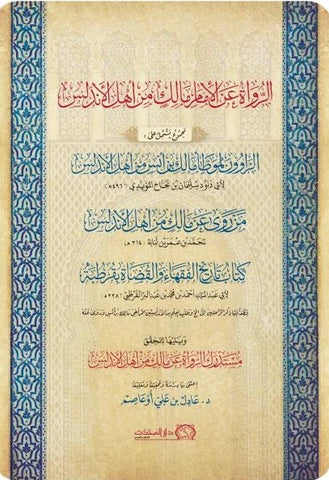 الرواة عن الإمام مالك من أهل الأندلس
مجموع يشتمل على :
الراوون لموطأ مالك بن أنس من أهل الأندلس
لأبي داود سليمان بن نجاح المؤيدي (ت٤٩٦هـ)
من روى عن مالك من أهل الأندلس
لمحمد بن عمر بن لبابة (ت٣١٤هـ)
كتاب تاريخ الفقهاء والقضاة بقرطبة
لأبي عبد الملك أحمد بن محمد بن عبد البر القرطبي (ت٣٣٨هـ)
ويليها للمحقق
مستدرك الرواة عن مالك من أهل الأندلس
اعتنى بها دراسة وتحقيقا وتعليقا
د. عادل بن علي أوعاصم
دار المحدث